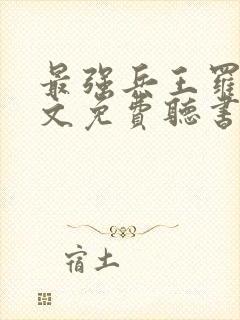 最强兵王罗
文免费聽書
宿土